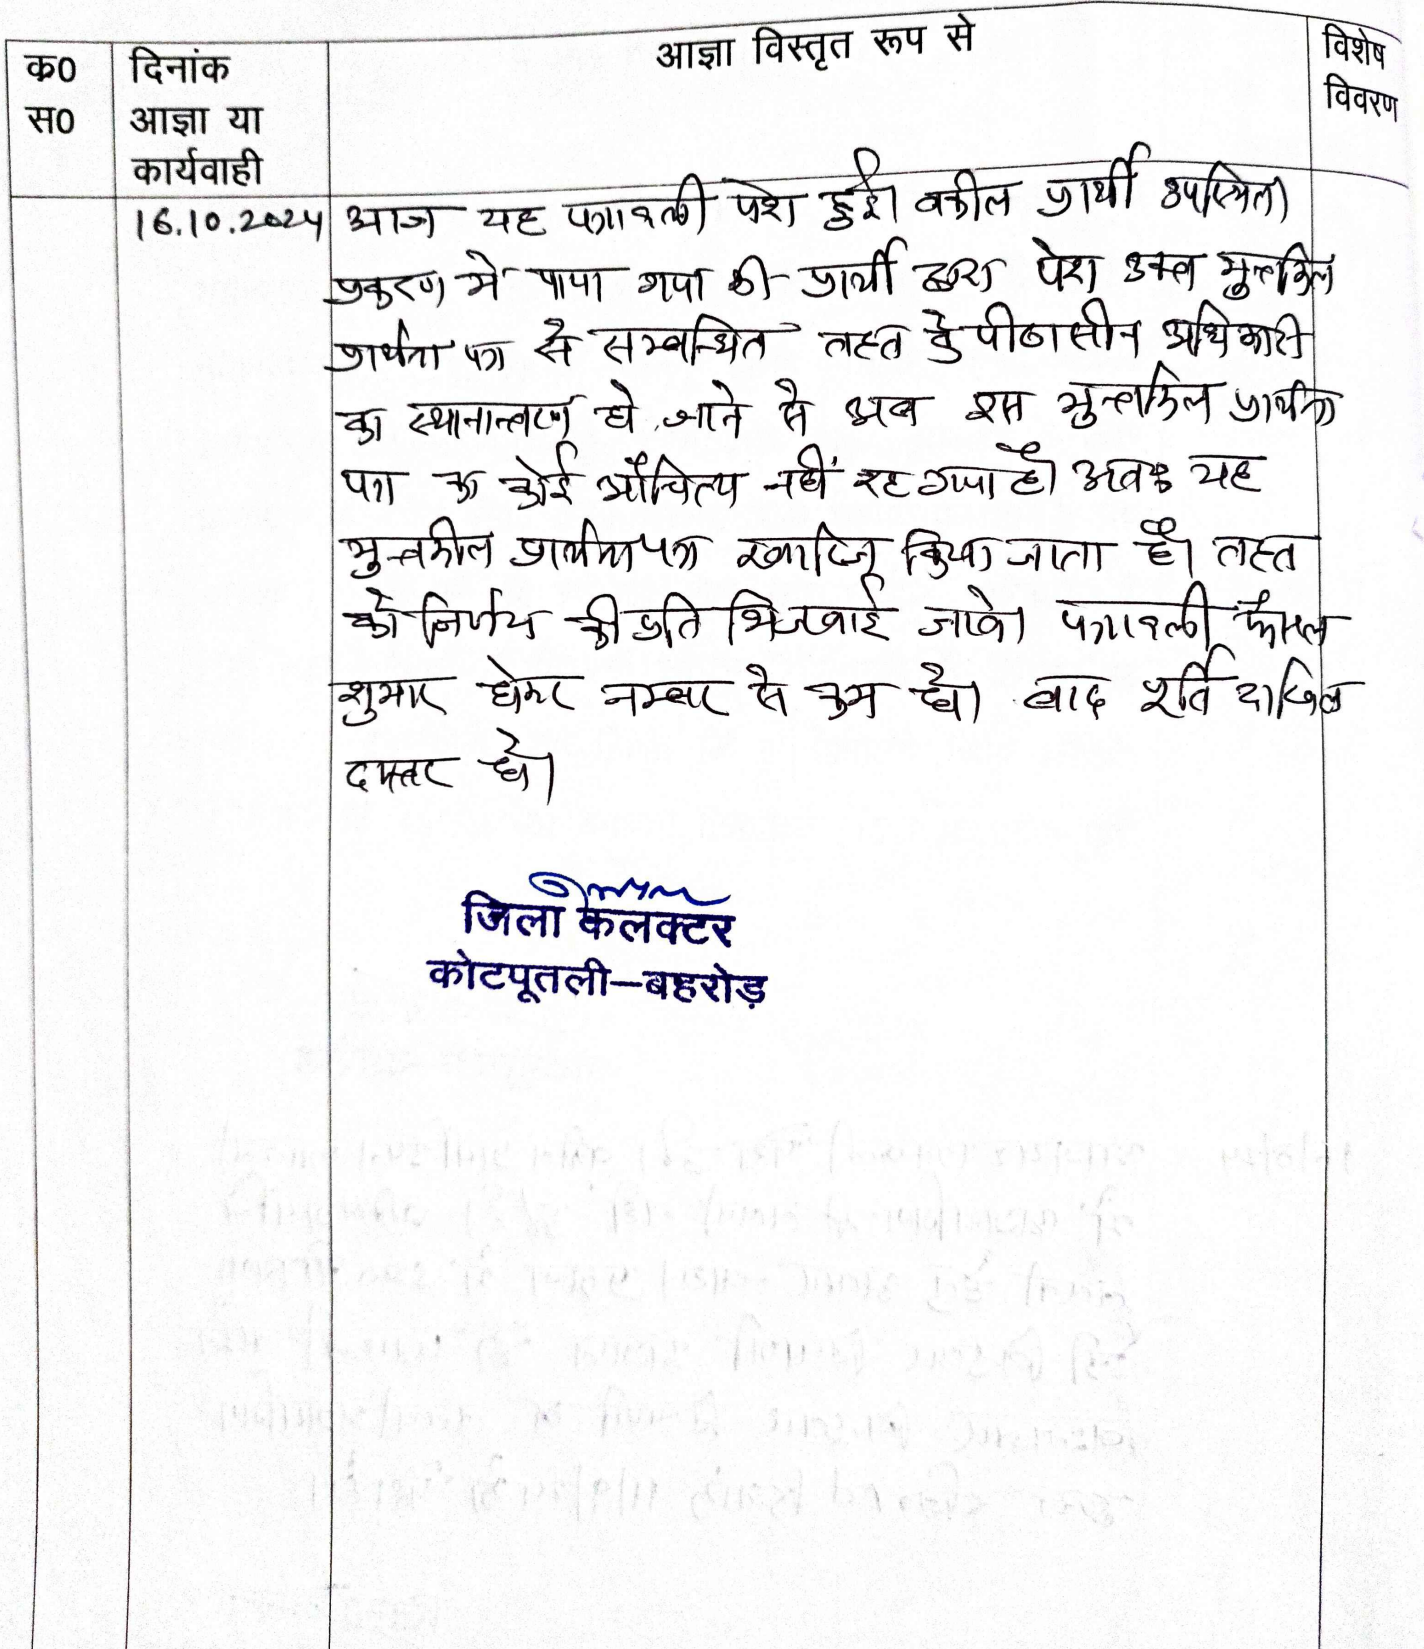 क0 स0
दिनांक आज्ञा या कार्यवाही
आज्ञा विस्तृत रूप से
विशेष विवरण
16.10.2024
आज यह पत्रावली पेश हुई। वकील प्रार्थी उपस्थित।
प्रकरण मे पाया गया की प्रार्थी द्वारा पेश उक्त मुन्तकिल
प्रार्थना पत्र से सम्बन्धित तहत के पीठासीन अधिकारी
का स्थानान्तरण हो जाने से अब इस मुन्तकिल प्रार्थना
पत्र का कोई औचित्य नहीं रह गया है। यह
मुन्तकील प्रार्थना पत्र खारिज किया जाता है। तहत
को निर्णय की प्रति भिजवाई जावे। पत्रावली फैसल
शुमार होकर नम्बर से कम हो। बाद पूर्ति दाखिल
दफ्तर हो।
जिला कलक्टर
कोटपूतली–बहरोड़